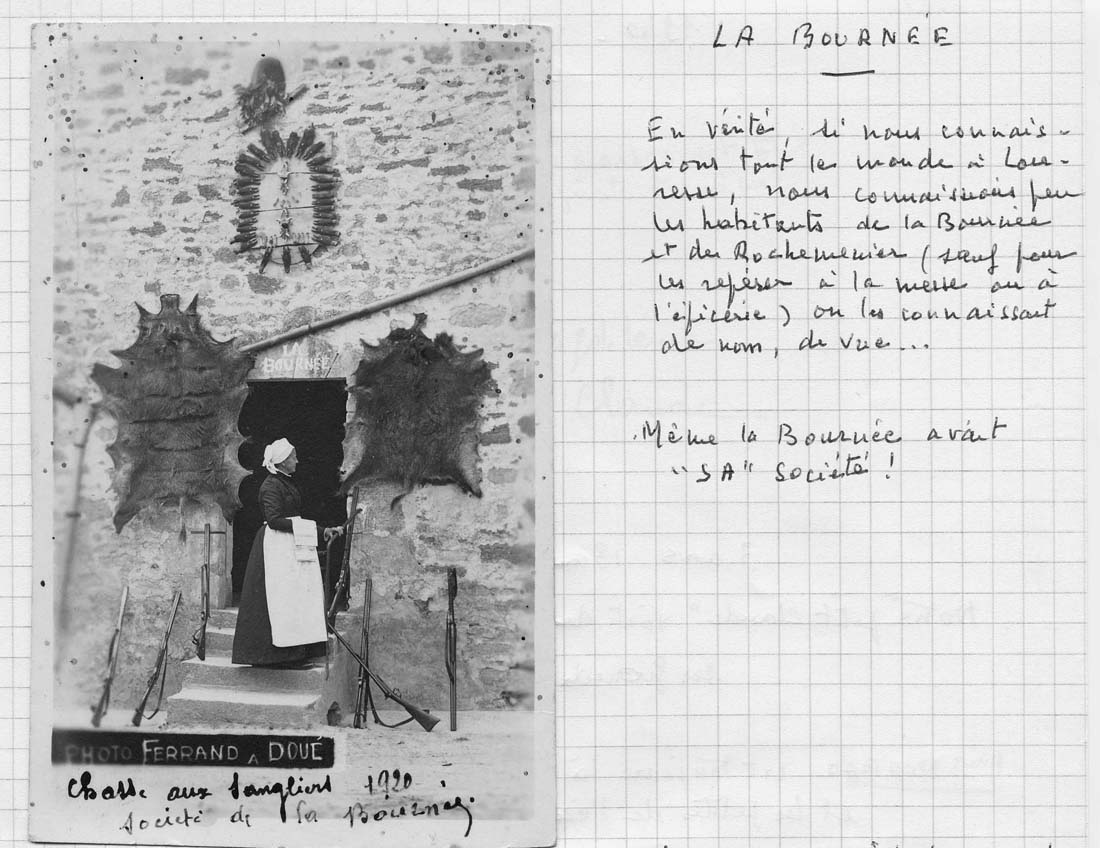 LA
BOURNÉE
PHOTO FERRAND A DOUÉ
Chasse aux sangliers 1920
Société de la Bournée.
LA BOURNÉE
En vérité, si nous connais-
sions tout le monde à Lou-
resse, nous connaissions peu
les habitants de la Bournée
et de Rochemenier (sauf pour
les repérer à la messe ou à
l'épicerie) on les connaissait
de nom, de vue...
Même la Bournée avait
"SA" Société !